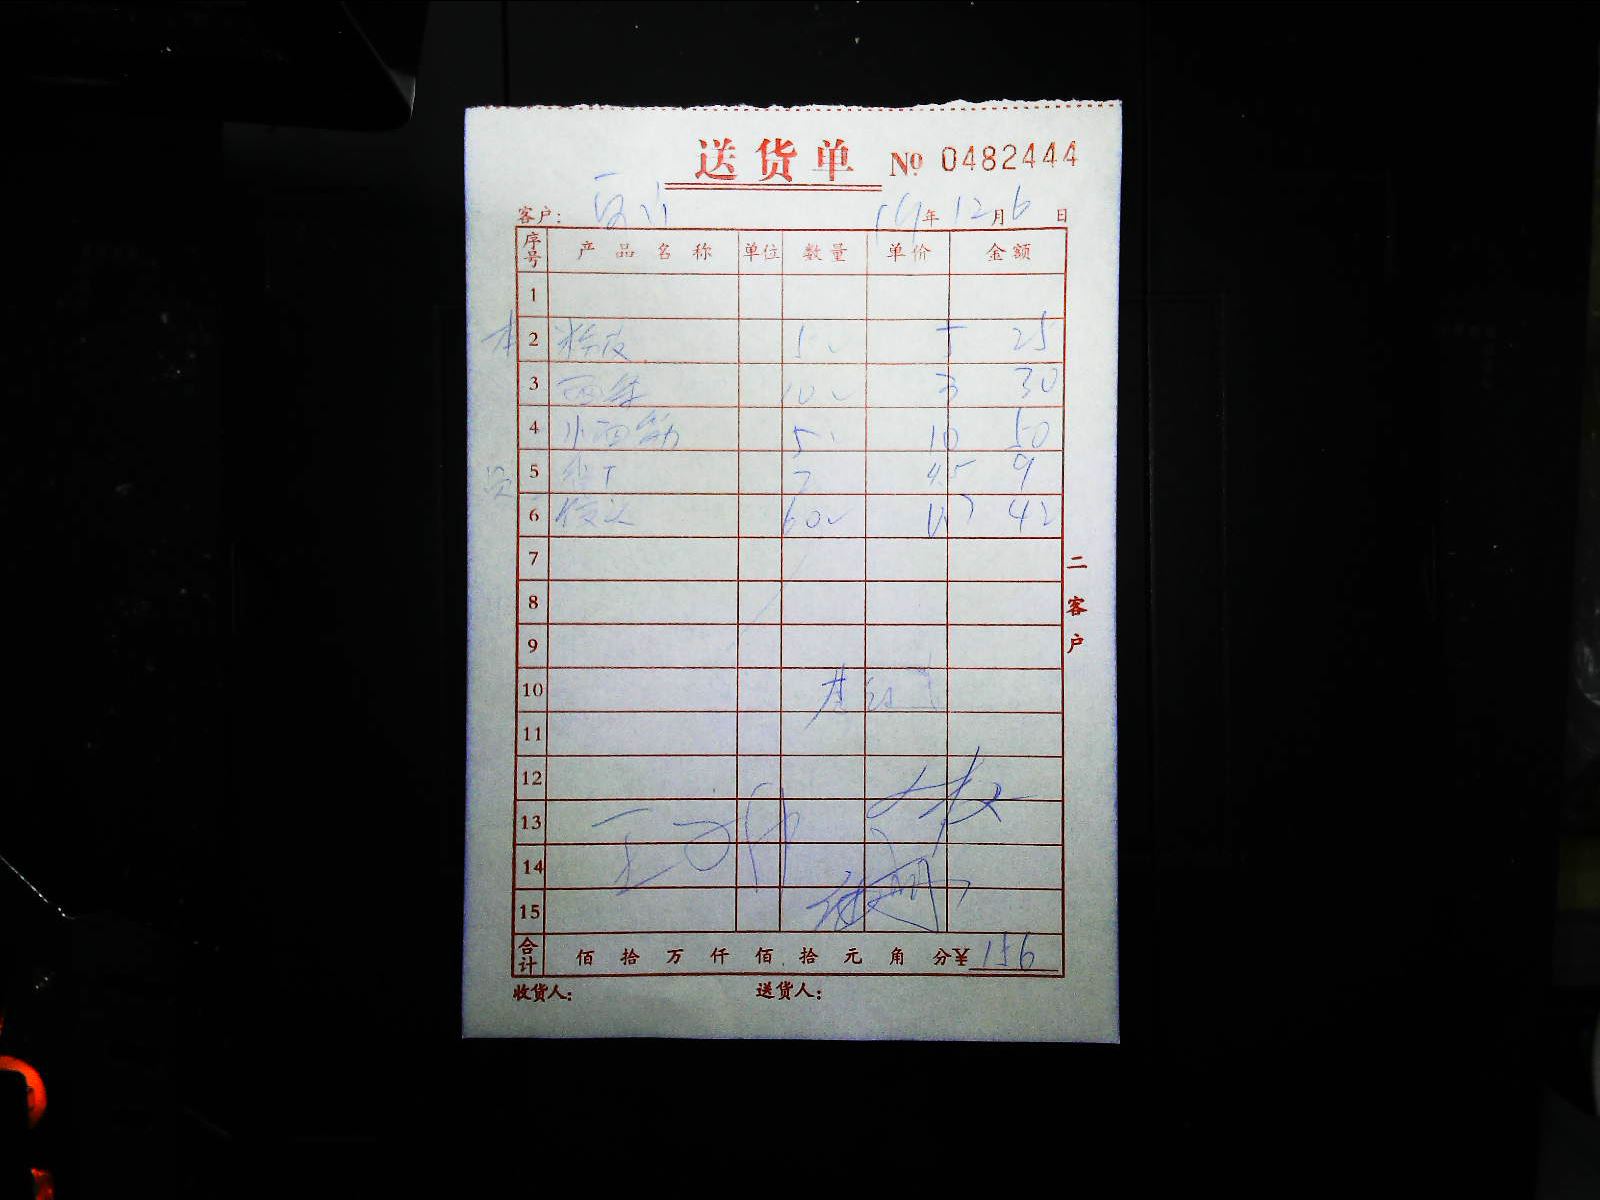 送货单 № 0482444
客户： 19年12月6日
序号 产品名称 单位 数量 单价 金额
1
2 粉皮 5 5 25
3 面条 10 3 30
4 小面筋 5 10 50
5 4.5 9
6 60 0.7 42
7
8
9
10
11
12
13
14
15
合计 佰 拾 万 仟 佰 拾 元 角 分 ¥ 156
收货人： 送货人：
二客户